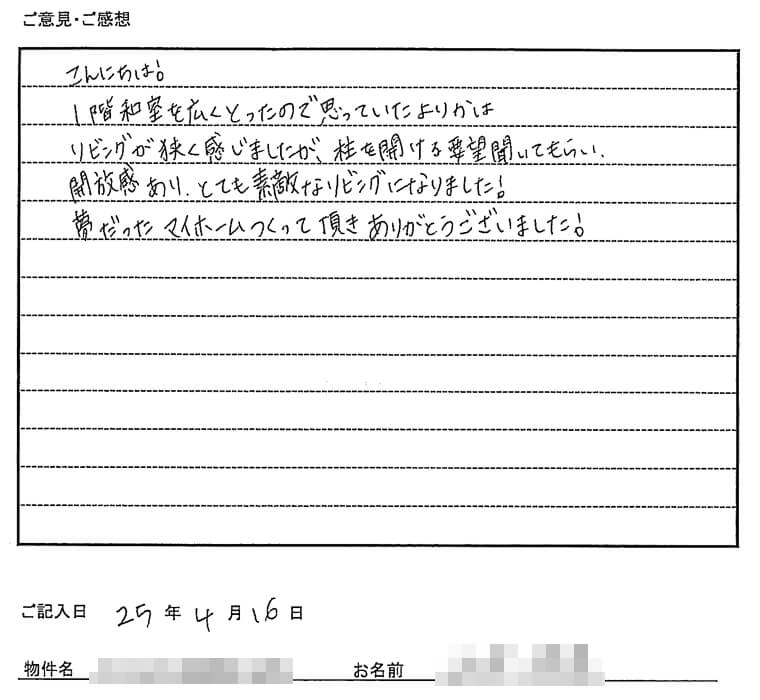 ご意見・ご感想
こんにちは!
1階和室を広くとったので思っていたよりかは
リビングが狭く感じましたが、柱を開ける要望聞いてもらい、
開放感あり、とても素敵なリビングになりました!
夢だったマイホームつくって頂きありがとうございました!
ご記入日 25年4月16日
物件名 お名前